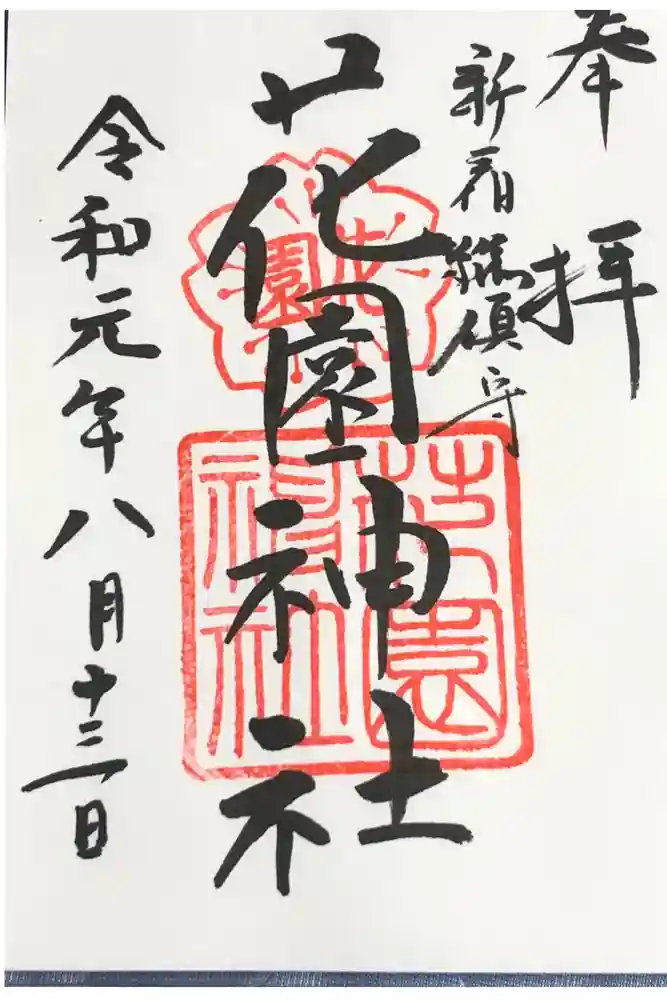 奉拝
新宿総鎮守
花園神社
花園
花園神社
令和元年八月十三日